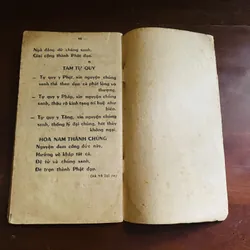 Ngã đẳng dữ chúng sanh.
Giai cộng thành Phật đạo.
TAM TỰ QUY
— Tự quy y Phật, xin nguyện chúng
sanh, thể theo đạo cả phát lòng vô
thượng.
— Tự quy y Pháp, xin nguyện chúng
sanh, thấu rõ kinh tạng trí huệ như
biển.
— Tự quy y Tăng, xin nguyện chúng
sanh, thống lý đại chúng, hết thảy
không ngại.
HÒA NAM THÁNH CHÚNG
Nguyện đem công đức này,
Hướng về khắp tất cả.
Đệ tử và chúng sanh,
Đều trọn thành Phật đạo.